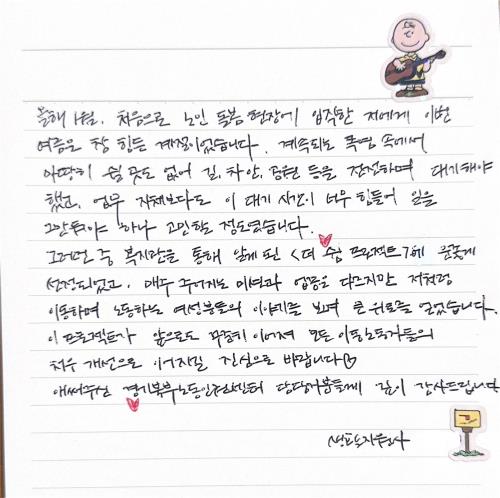 올해 1월, 처음으로 노인 돌봄 현장에 입직한 저에게 이번
여름은 참 힘든 계절이었습니다. 계속되는 폭염 속에서
마땅히 쉴 곳도 없어 길, 차 안, 공원 등을 전전하며 대기해야
했고, 업무 자체보다도 이 대기 시간이 너무 힘들어 일을
그만둬야 하나 고민할 정도였습니다.
그러던 중 복지관을 통해 알게 된 <더 쉼 프로젝트>에 운좋게
선정되었고, 매주 주어지는 업종은 다르지만 저처럼
이동하며 노동하는 여성분들의 이야기를 보며 큰 위로를 얻었습니다.
이 프로젝트가 앞으로도 꾸준히 이어져 모든 이동노동자들의
처우 개선으로 이어지길 진심으로 바랍니다♡
애써주신 경기북부노동인권센터 담당자분들께 깊이 감사드립니다
생활지원사